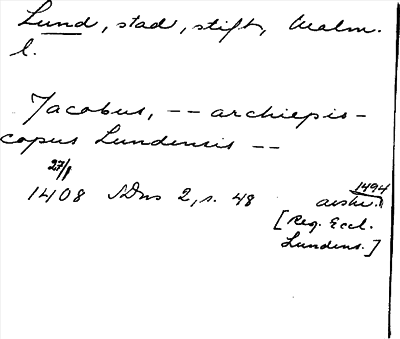 Lund, stad, stift, Malm.
l.
Jacobus, -- archiepis-
copus Lundensis --
27/1
1408 SDns 2, s. 48 avskr. 1494
[Reg. Eccl.
Lundens.]